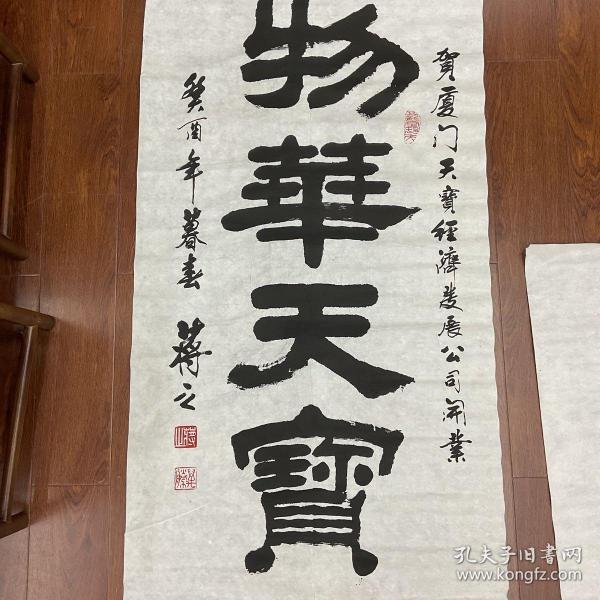 贺厦门天寶经濟发展公司开業
物華天寶
癸酉年暮春 蒋之
孔夫子旧书网
www.kongfz.com